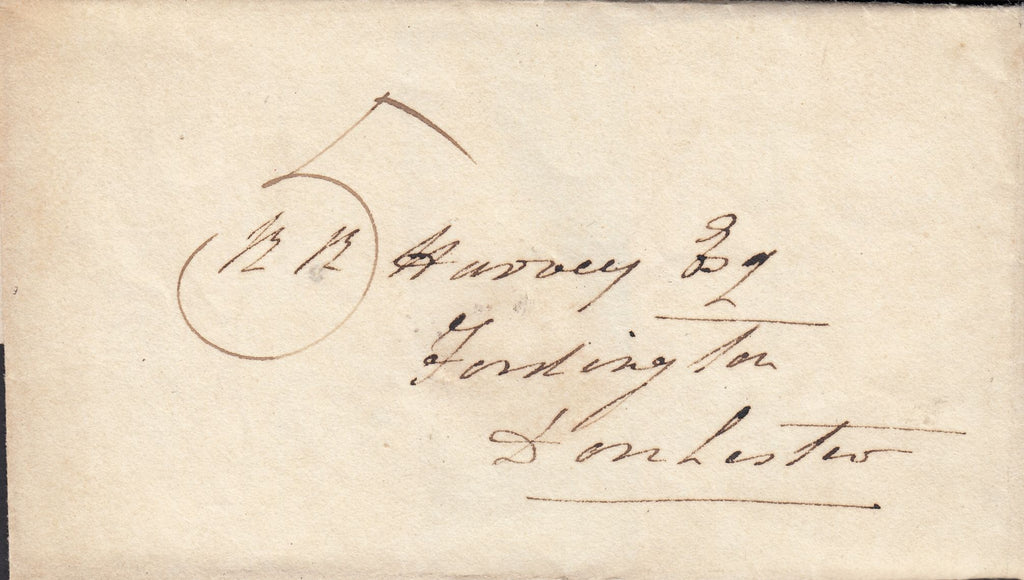 5
R R Harvey Esq
Fordington
Dorchester